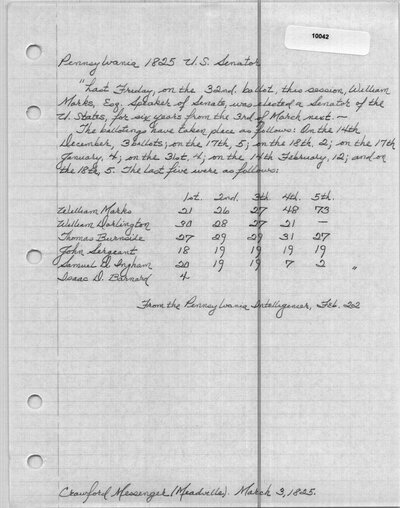 10042
Pennsylvania 1825 U.S. Senator
"Last Friday, on the 32nd. ballot, this session, William
Marks, Esq. Speaker of Senate, was elected a Senator of the
U. States, for six years from the 3rd of March next. —
The ballotings have taken place as follows: On the 14th
December, 3 ballots; on the 17th, 5; on the 18th, 2; on the 17th
January, 4; on the 31st, 4; on the 14th February, 12; and on
the 18th, 5. The last five were as follows:
1st. 2nd. 3th 4th. 5th.
William Marks 21 26 27 48 73
William Darlington 30 28 27 21 —
Thomas Burnside 27 29 29 31 27
John Sergeant 18 19 19 19 19
Samuel D. Ingham 20 19 19 7 2 "
Isaac D. Barnard 4
From the Pennsylvania Intelligencer, Feb.
Crawford Messenger (Meadville). March 3, 1825.